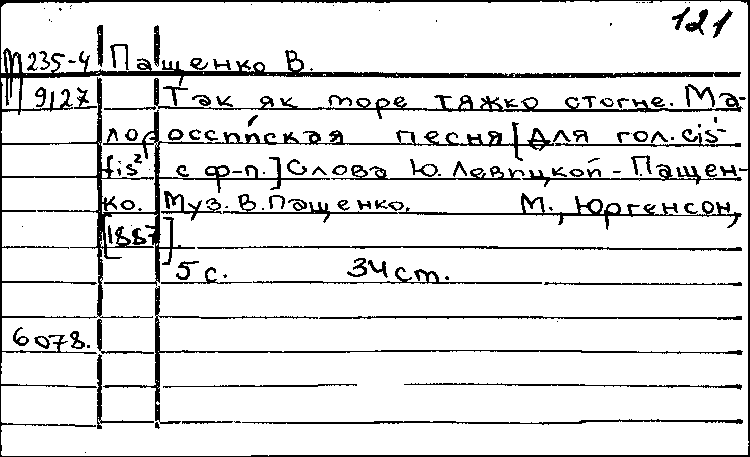 121
М 235-4 Пащенко В.
9127 Так як море тяжко стогне. Ма-
лороссийская песня [для гол. cis¹-
fis² с ф-п.] Слова Ю. Левицкой-Пащен-
ко. Муз. В. Пащенко. М., Юргенсон,
[1887].
5 с. 34 cm.
6078.